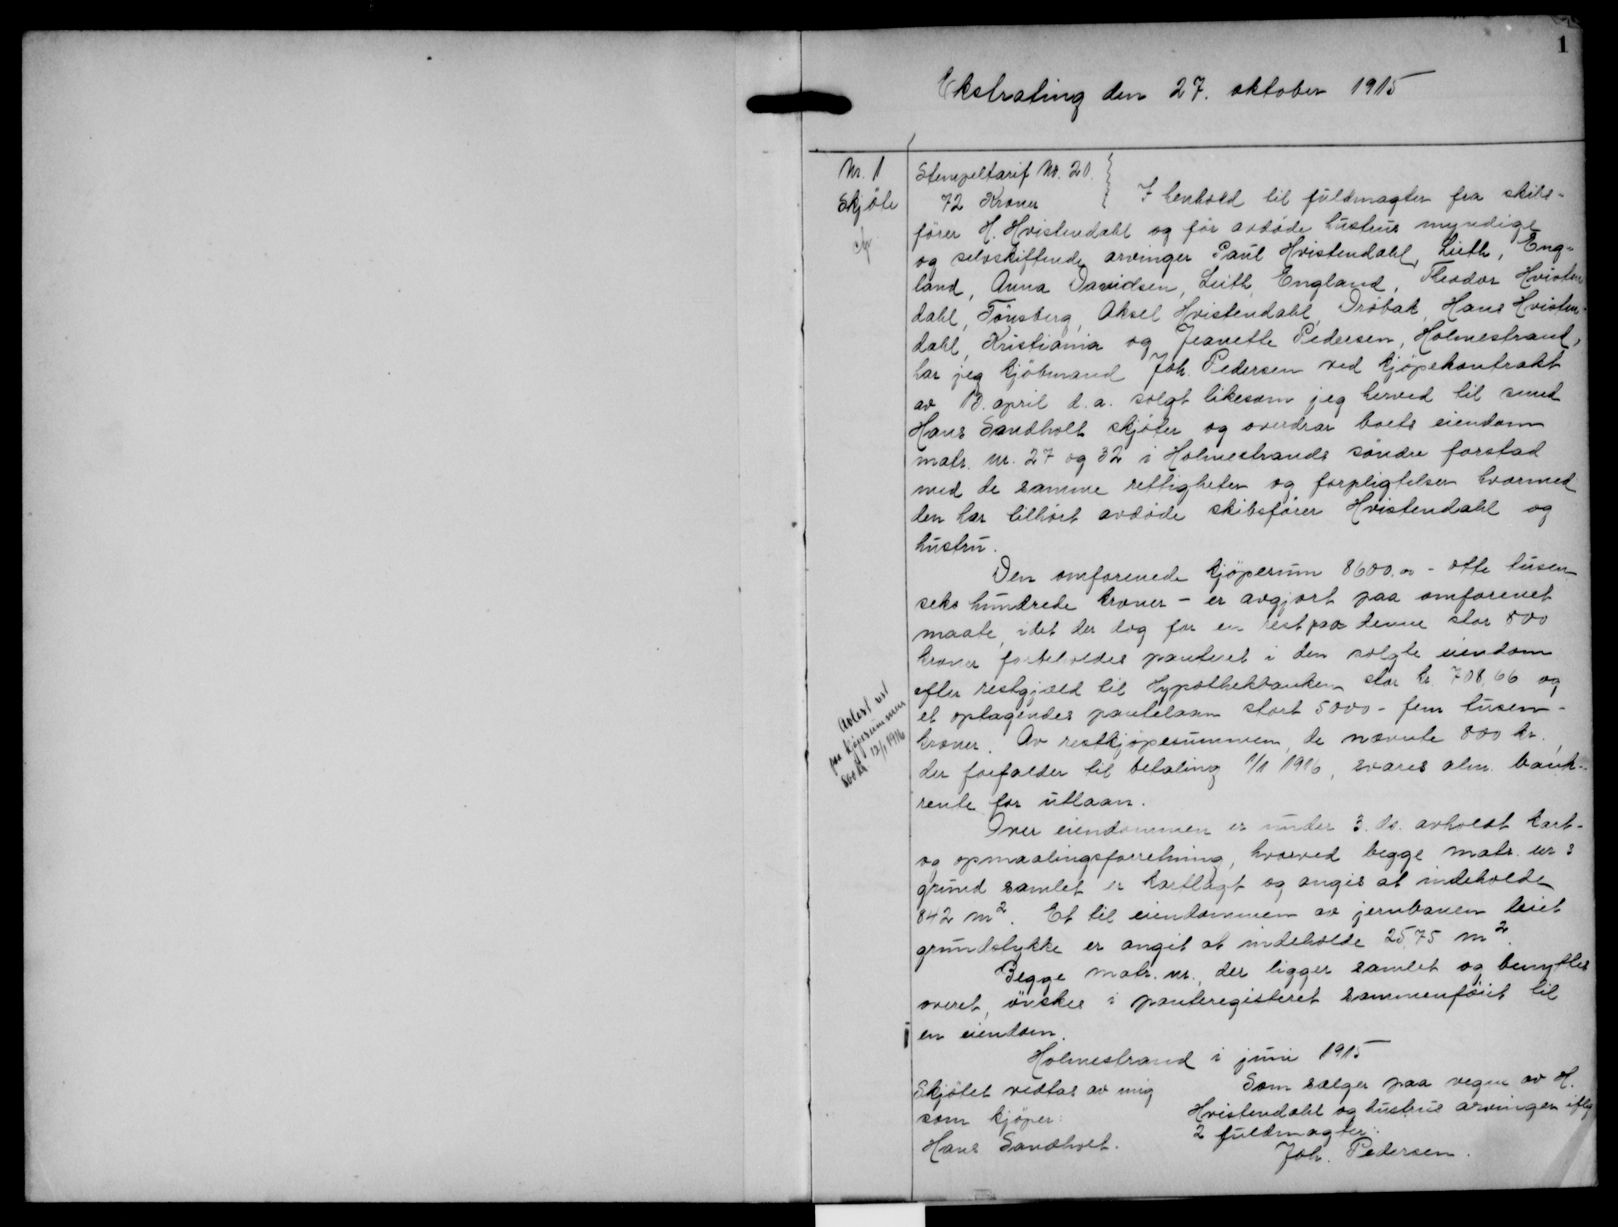 1
Ekstrating den 27. oktober 1915
Nr. 1
Skjöte
Stempeltarif Nr. 20.
72 Kroner
I henhold til fuldmagter fra skibs-
förer H. Hvistendahl og for avdöde hustrus myndige
og selvskiftende arvinger Paul Hvistendahl, Leith, Eng-
land, Anna Davidsen, Leith, England, Theodor Hvisten-
dahl, Tönsberg, Aksel Hvistendahl, Dröbak, Hans Hvisten-
dahl, Kristiania og Jeanette Pedersen, Holmestrand,
har jeg kjöbmand Joh. Pedersen ved kjöpekontrakt
av 13. april d.a. solgt likesom jeg herved til smed
Hans Sandholt skjöter og overdrar boets eiendom
matr. nr. 27 og 32 i Holmestrands söndre forstad
med de samme rettigheter og forpligtelser hvormed
den har tilhört avdöde skibsförer Hvistendahl og
hustru.
Den omforenede kjöpesum 8600.00 - otte tusen
seks hundrede kroner - er avgjort paa omforenet
maate, idet der dog for en rest paa denne stor 800
kroner forbeholdes panteret i den solgte eiendom
efter restgjæld til Hypothekbanken stor kr. 708,66 og
et optagendes pantelaan stort 5000 - fem tusen -
kroner. Av restkjöpesummen, de nævnte 800 kr.,
der forfalder til betaling 1/1 1916, svares alm. bank-
rente for utlaan.
Avlest rest
paa kjöpesummen
800 kr 12/1 1916
Over eiendommen er under 3. ds. avholdt kart-
og opmaalingsforretning, hvorved begge matr. nr.s
grund samlet er kartlagt og angis at indeholde
842 m². Et til eiendommen av jernbanen leiet
grundstykke er angit at indeholde 25,75 m².
Begge matr. nr., der ligger samlet og benyttes
overet, önskes i panteregisteret sammenföiet til
en eiendom.
Holmestrand i juni 1915
Skjötet vedtas av mig
som kjöper:
Hans Sandholt.
Som sælger paa vegne av H.
Hvistendahl og hustrus arvinger iflg
2 fuldmagter:
Joh. Pedersen.